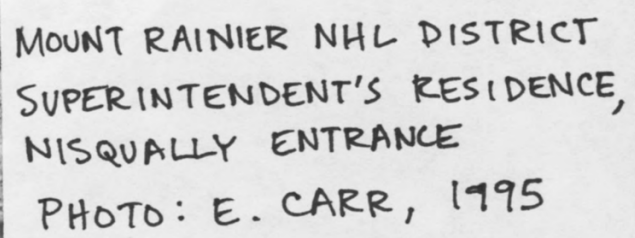 MOUNT RAINIER NHL DISTRICT
SUPERINTENDENT'S RESIDENCE,
NISQUALLY ENTRANCE
PHOTO: E. CARR, 1995